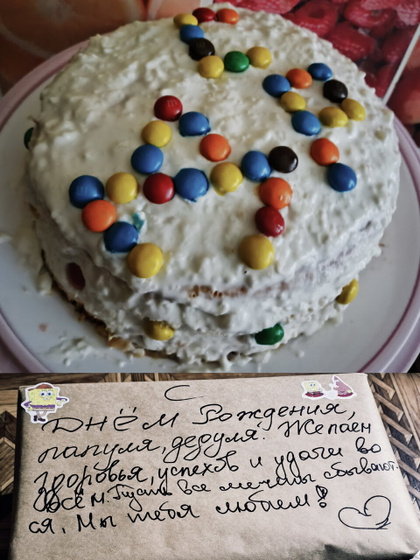 С
ДНЁМ Рождения,
папуля, дедуля! Желаем
здоровья, успехов и удачи во
всём. Пусть все мечты сбывают-
ся, Мы тебя любим!